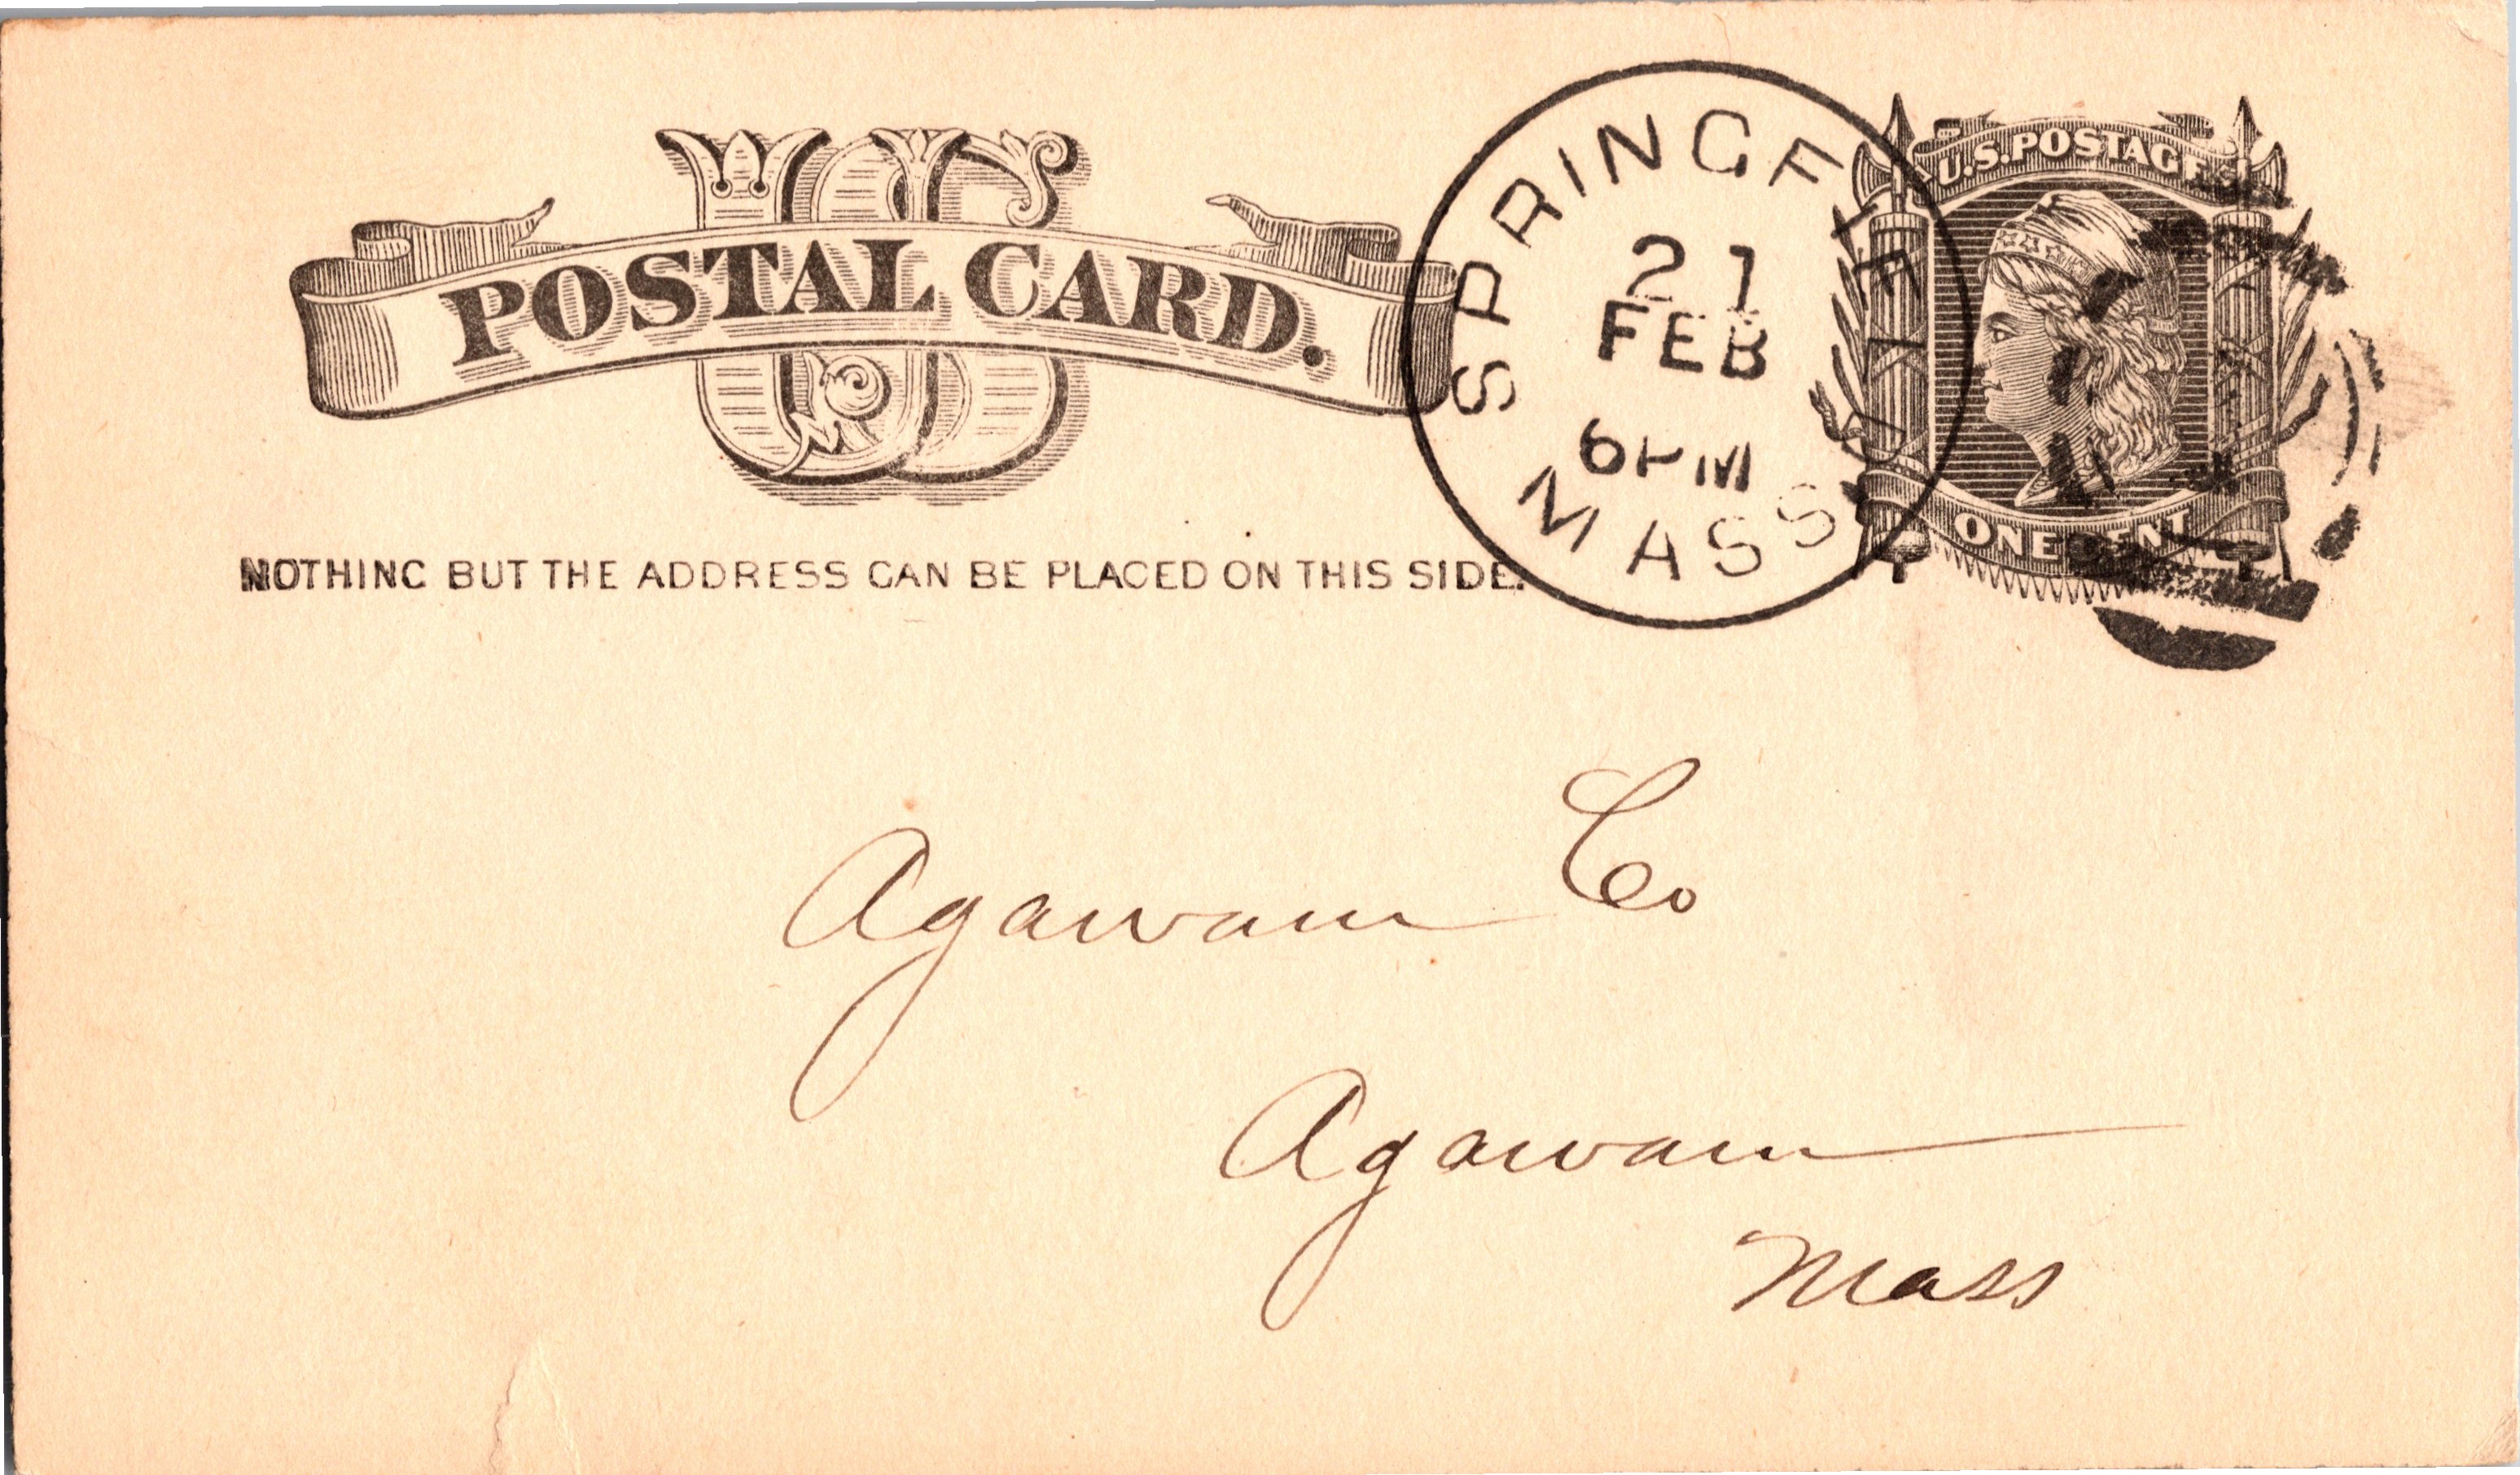 US
POSTAL CARD.
NOTHING BUT THE ADDRESS CAN BE PLACED ON THIS SIDE.
SPRINGFIELD
21
FEB
6PM
MASS
U.S. POSTAGE
ONE CENT
Agawam Co
Agawam
Mass